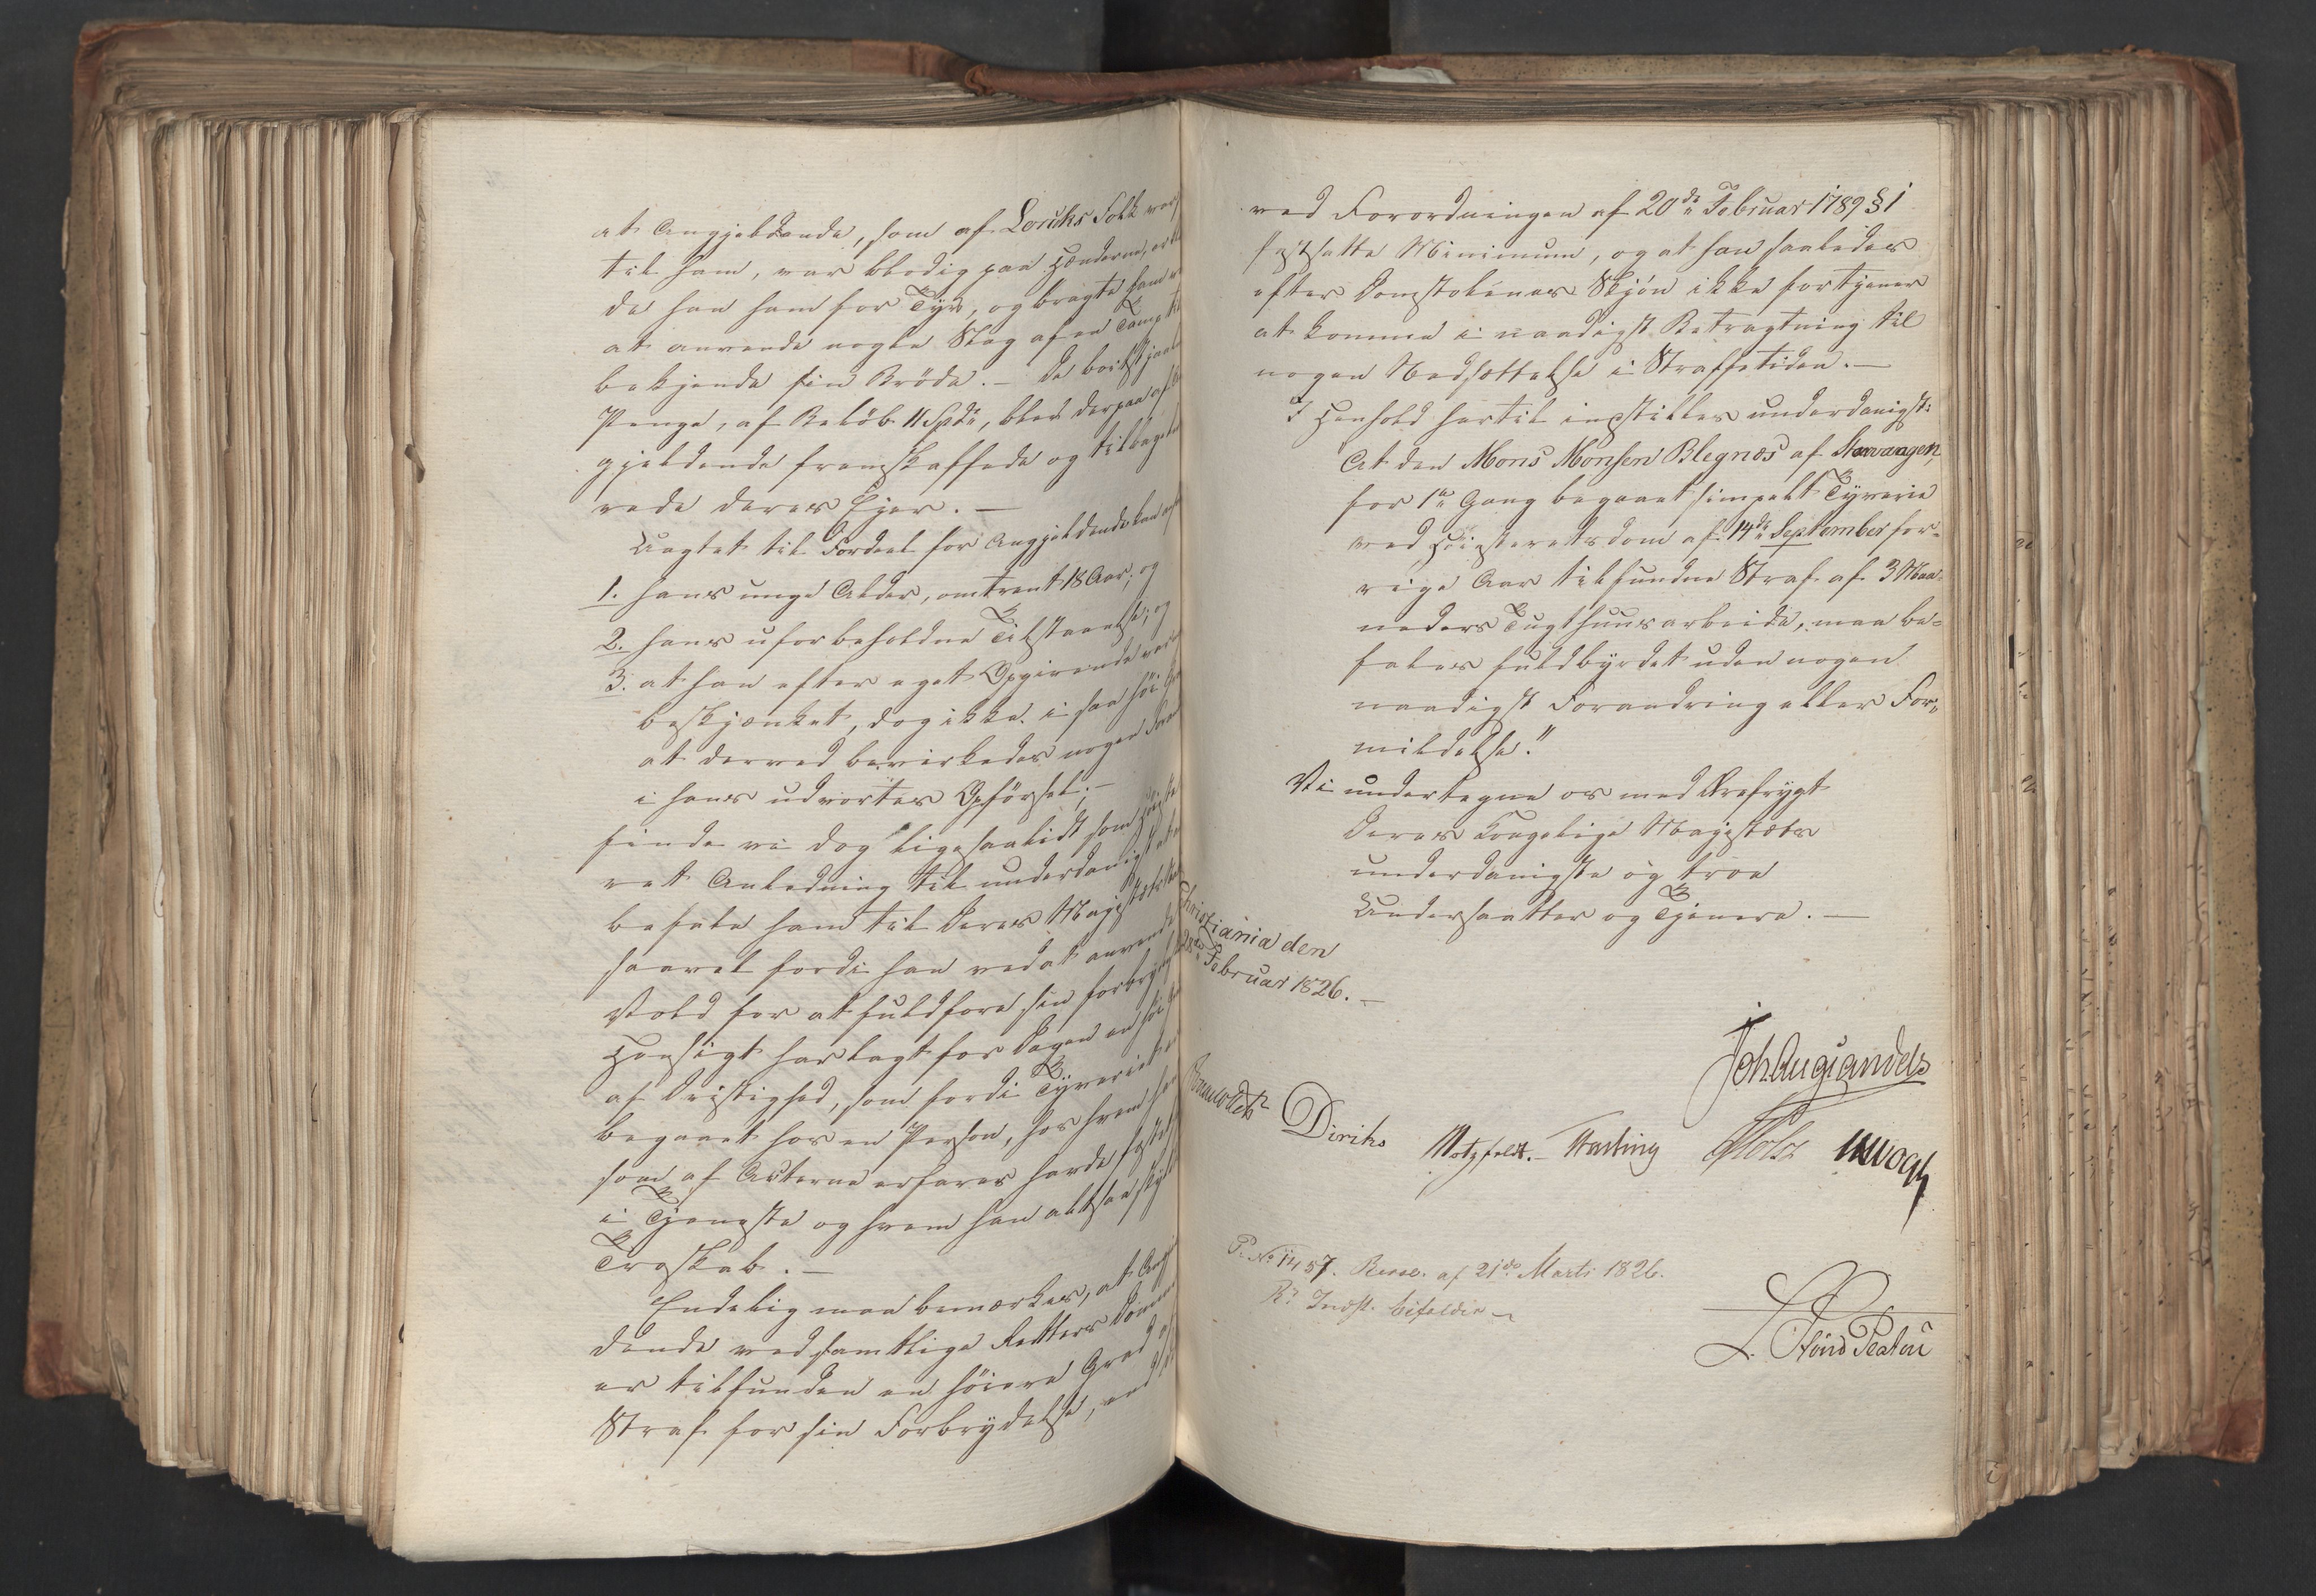 at Angjeldende, som af Loricks Folk var
til ham, var blodig paa Hænderne,
da han ham for Tyv, og bragte ham
at anvende nogle Slag af en Tamp til
bekjende sin Brøde. – De bortstjaalne
Penge, af Beløb 11 Spdr, blev derpaa af
gjeldende fremskaffede og tilbageleve
rede deres Ejer. –
Uagtet til Fordeel for Angjeldende kan
1. hans unge Alder, omtrent 18 Aar; og
2. hans uforbeholdne Tilstaaelse; og
3. at han efter eget Opgivende var
beskjænket, dog ikke i saa høi Grad
at derved bevirkedes nogen
i hans udvortes Opførsel; –
finde vi dog ligesaalidt som Høieste
ret Anledning til underdanigst at an
befale ham til Deres Majestæts
saavel fordi han ved at anvende
Vold for at fuldføre sin forbryderske
Hensigt har lagt for Dagen en høi Grad
af Dristighed, som fordi Tyveriet er
begaaet hos en Person, hos hvem han
som af Acterne erfares havde fæstet sig
i Tjeneste og hvem han altsaa skyldte
Troskab. –
Endelig maa bemærkes, at Angjel
dende ved samtlige Retters Domme
er tilfunden en høiere Grad af
Straf for sin Forbrydelse, end det
ved Forordningen af 20de Februar 1789 § 1
fastsatte Minimum, og at han saaledes
efter Domstolenes Skjøn ikke fortjener
at komme i naadigst Betragtning til
nogen Nedsættelse i Straffetiden. –
I Henhold hertil indstilles underdanigst:
At den Mons Monsen Blegnæs af Stavanger,
for 1ste Gang begaaet simpelt Tyverie
ved Høiesteretsdom af 14de September for-
rige Aar tilfundne Straf af 3 Maa-
neders Tugthuusarbeide, maa be-
fales fuldbyrdet uden nogen
naadigst Forandring eller For-
mildelse."
Vi undertegne os med Ærefrygt
Deres Kongelige Majestæts
underdanigste og troe
Undersaatter og Tjenere. –
Christiania den
28de Februar 1826. –
Joh. Aug. Sandels
Diriks Motzfeldt. – Fasting Holst JHVogt
P. No 1457. Resol. af 21de Marti 1826.
Rs Indst. bifaldes